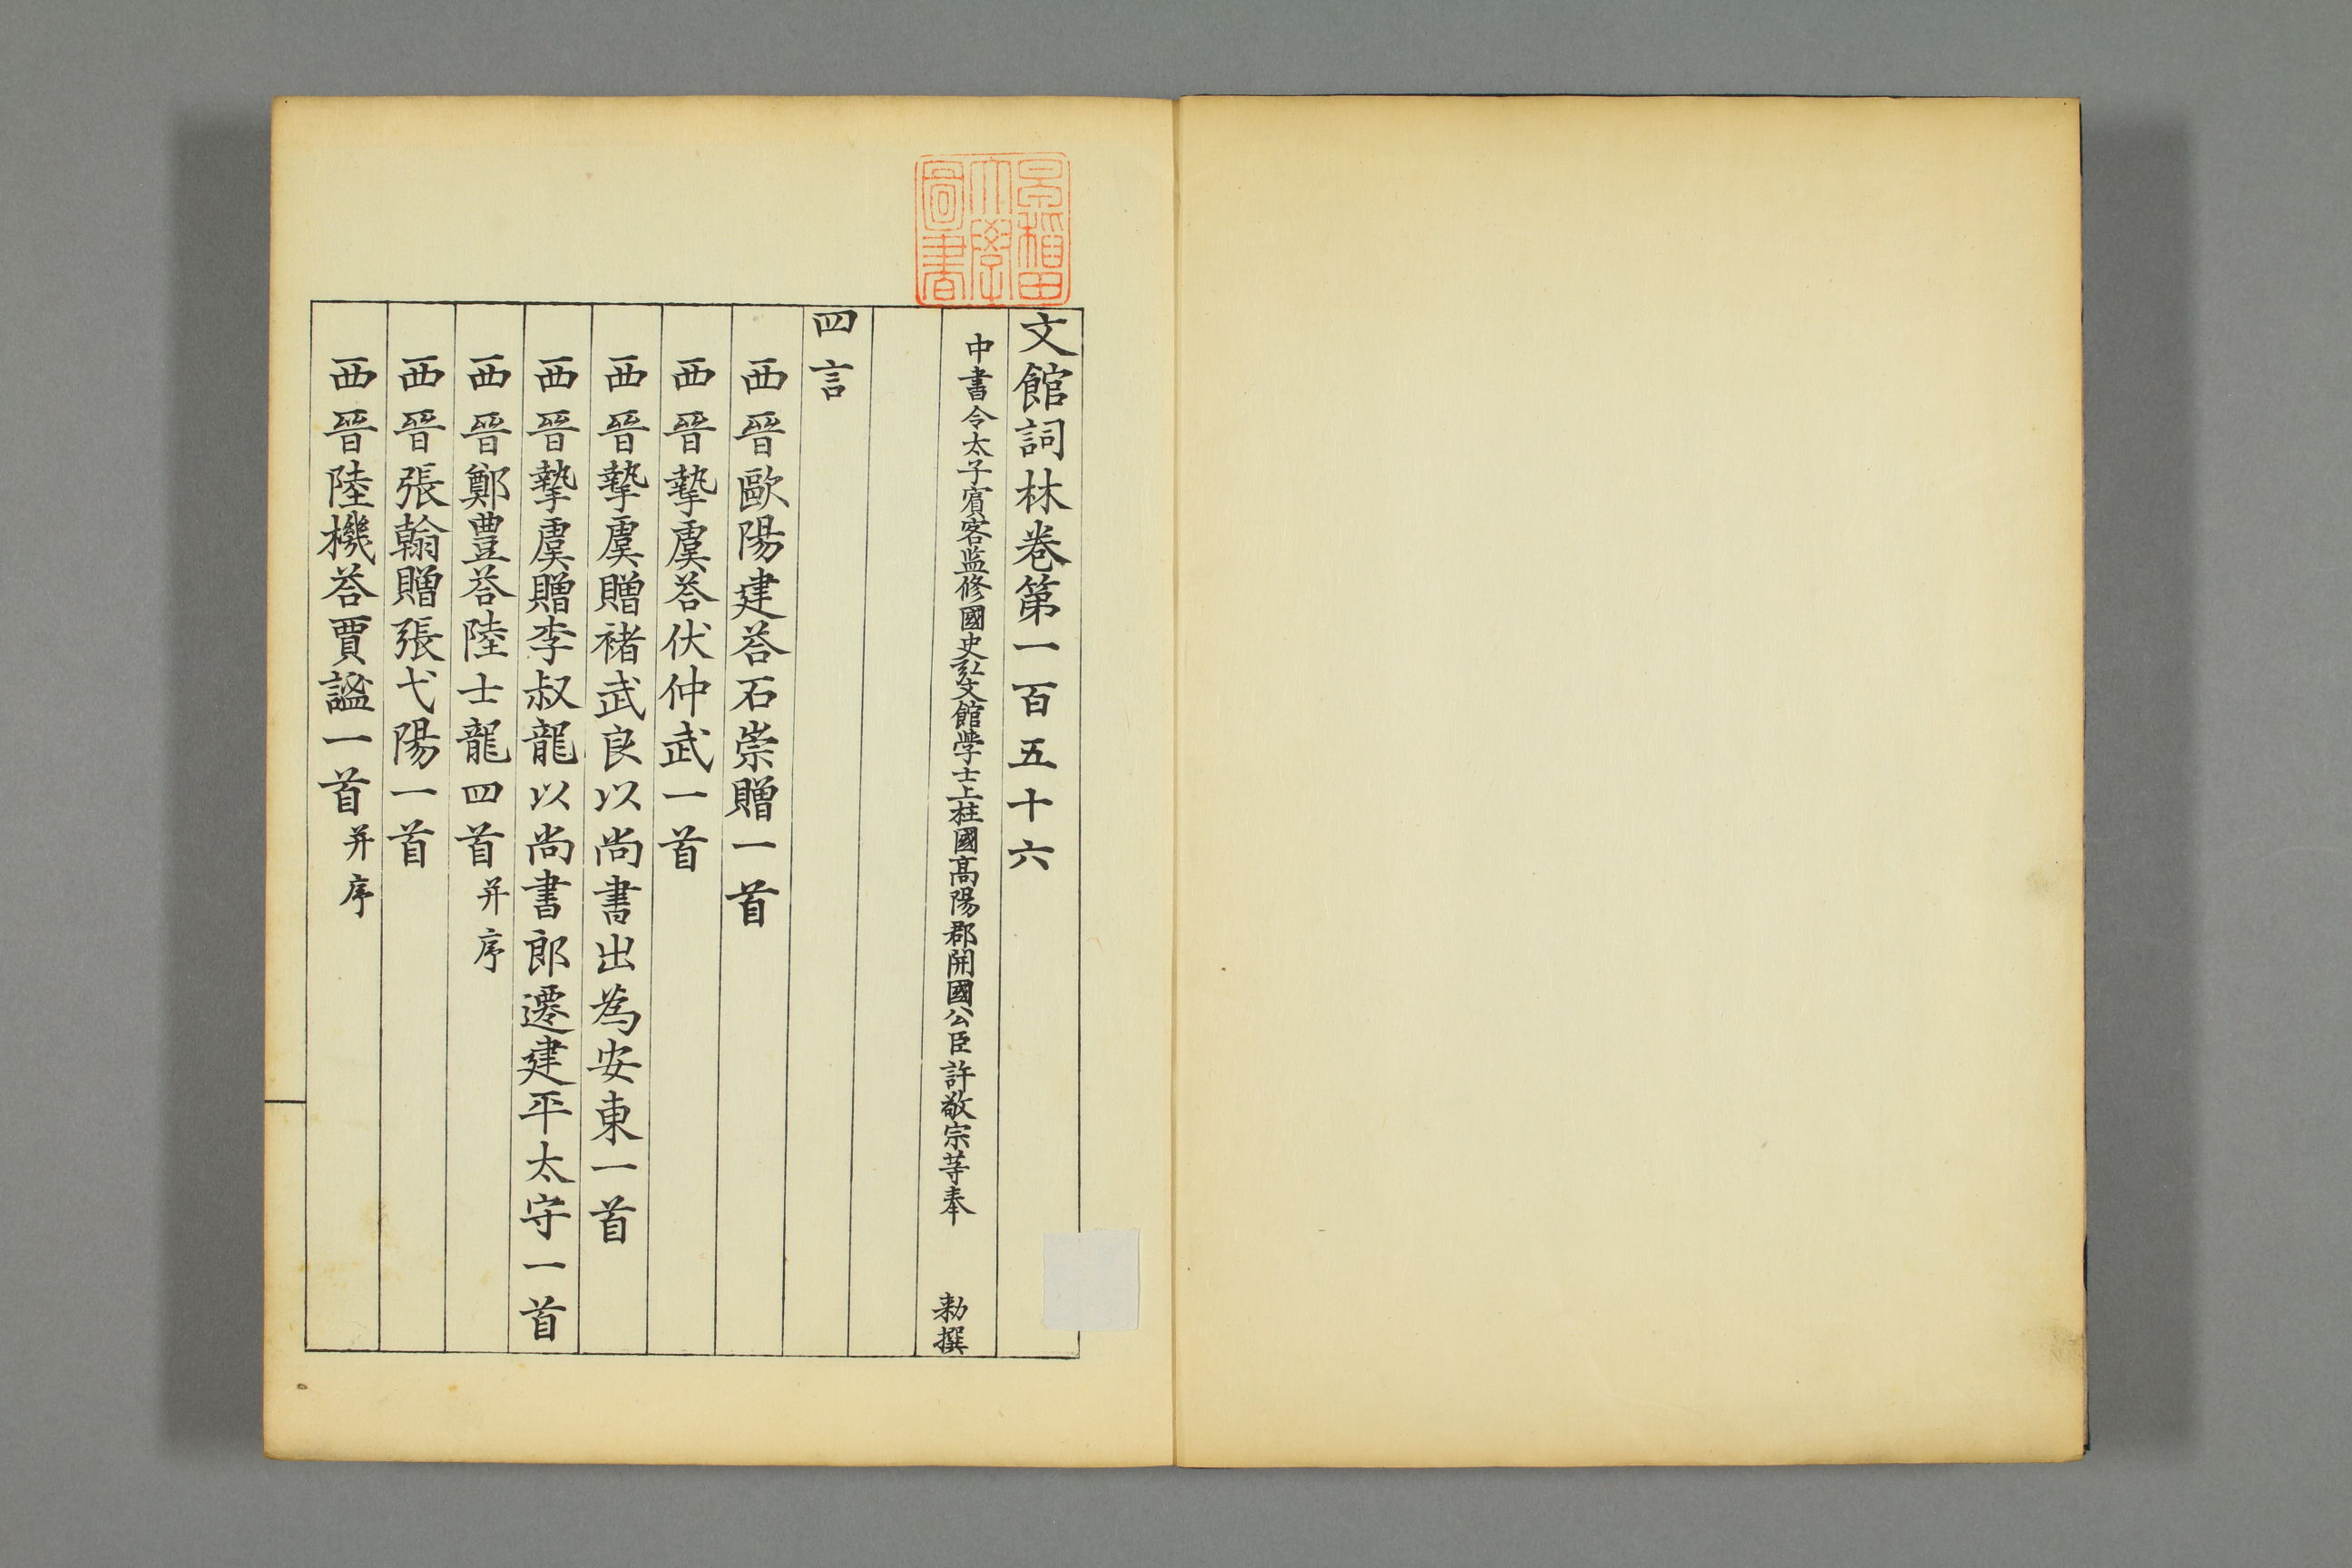 早稲田大學圖書
文館詞林卷第一百五十六
中書令太子賓客監修國史弘文館學士上柱國高陽郡開國公臣許敬宗等奉　勅撰
四言
西晉歐陽建荅石崇贈一首
西晉摯虞荅伏仲武一首
西晉摯虞贈褚武良以尚書出為安東一首
西晉摯虞贈李叔龍以尚書郎遷建平太守一首
西晉鄭豊荅陸士龍四首并序
西晉張翰贈張弋陽一首
西晉陸機荅賈謐一首并序